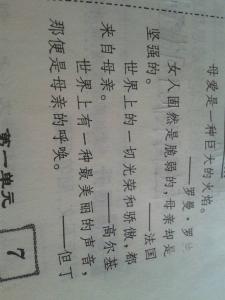 母爱是一种巨大的火焰。
——罗曼·罗
女人固然是脆弱的,母亲却是
坚强的。 ——法国
世界上的一切光荣和骄傲,都
来自母亲。 ——高尔基
世界上有一种最美丽的声音,
那便是母亲的呼唤。 ——但丁
第一单元 7